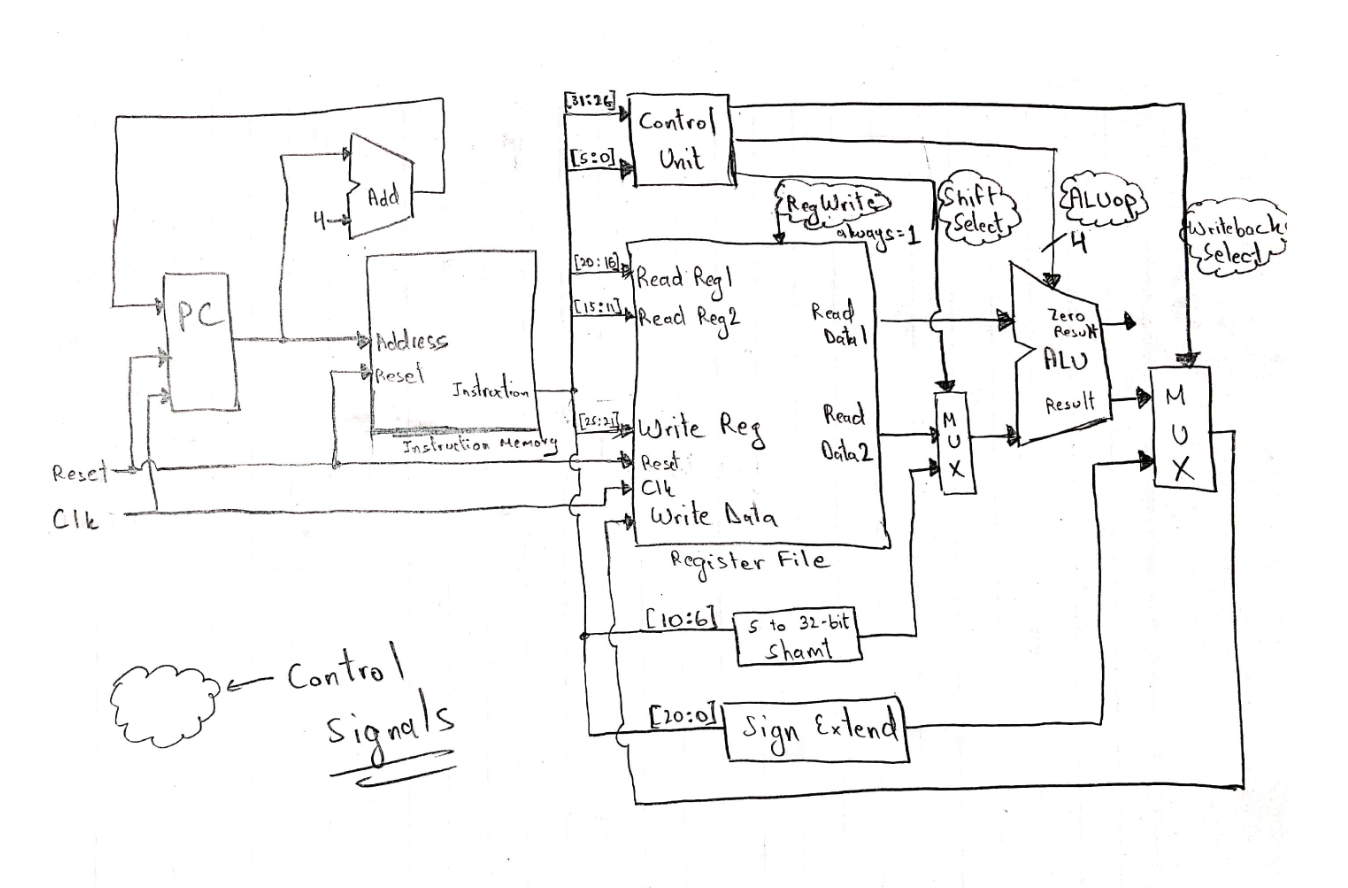 [31:26]
Control
Unit
[5:0]
RegWrite
always=1
Shift
Select
ALUop
4
Writeback
Select
Add
4
PC
Address
Reset
Instruction
Instruction Memory
[20:16]
Read Reg1
[15:11]
Read Reg2
Read
Data1
[25:21]
Write Reg
Read
Data2
Reset
Clk
Write Data
Register File
M
U
X
Zero
Result
ALU
Result
M
U
X
Reset
Clk
[10:6]
5 to 32-bit
Shamt
[20:0]
Sign Extend
Control
Signals